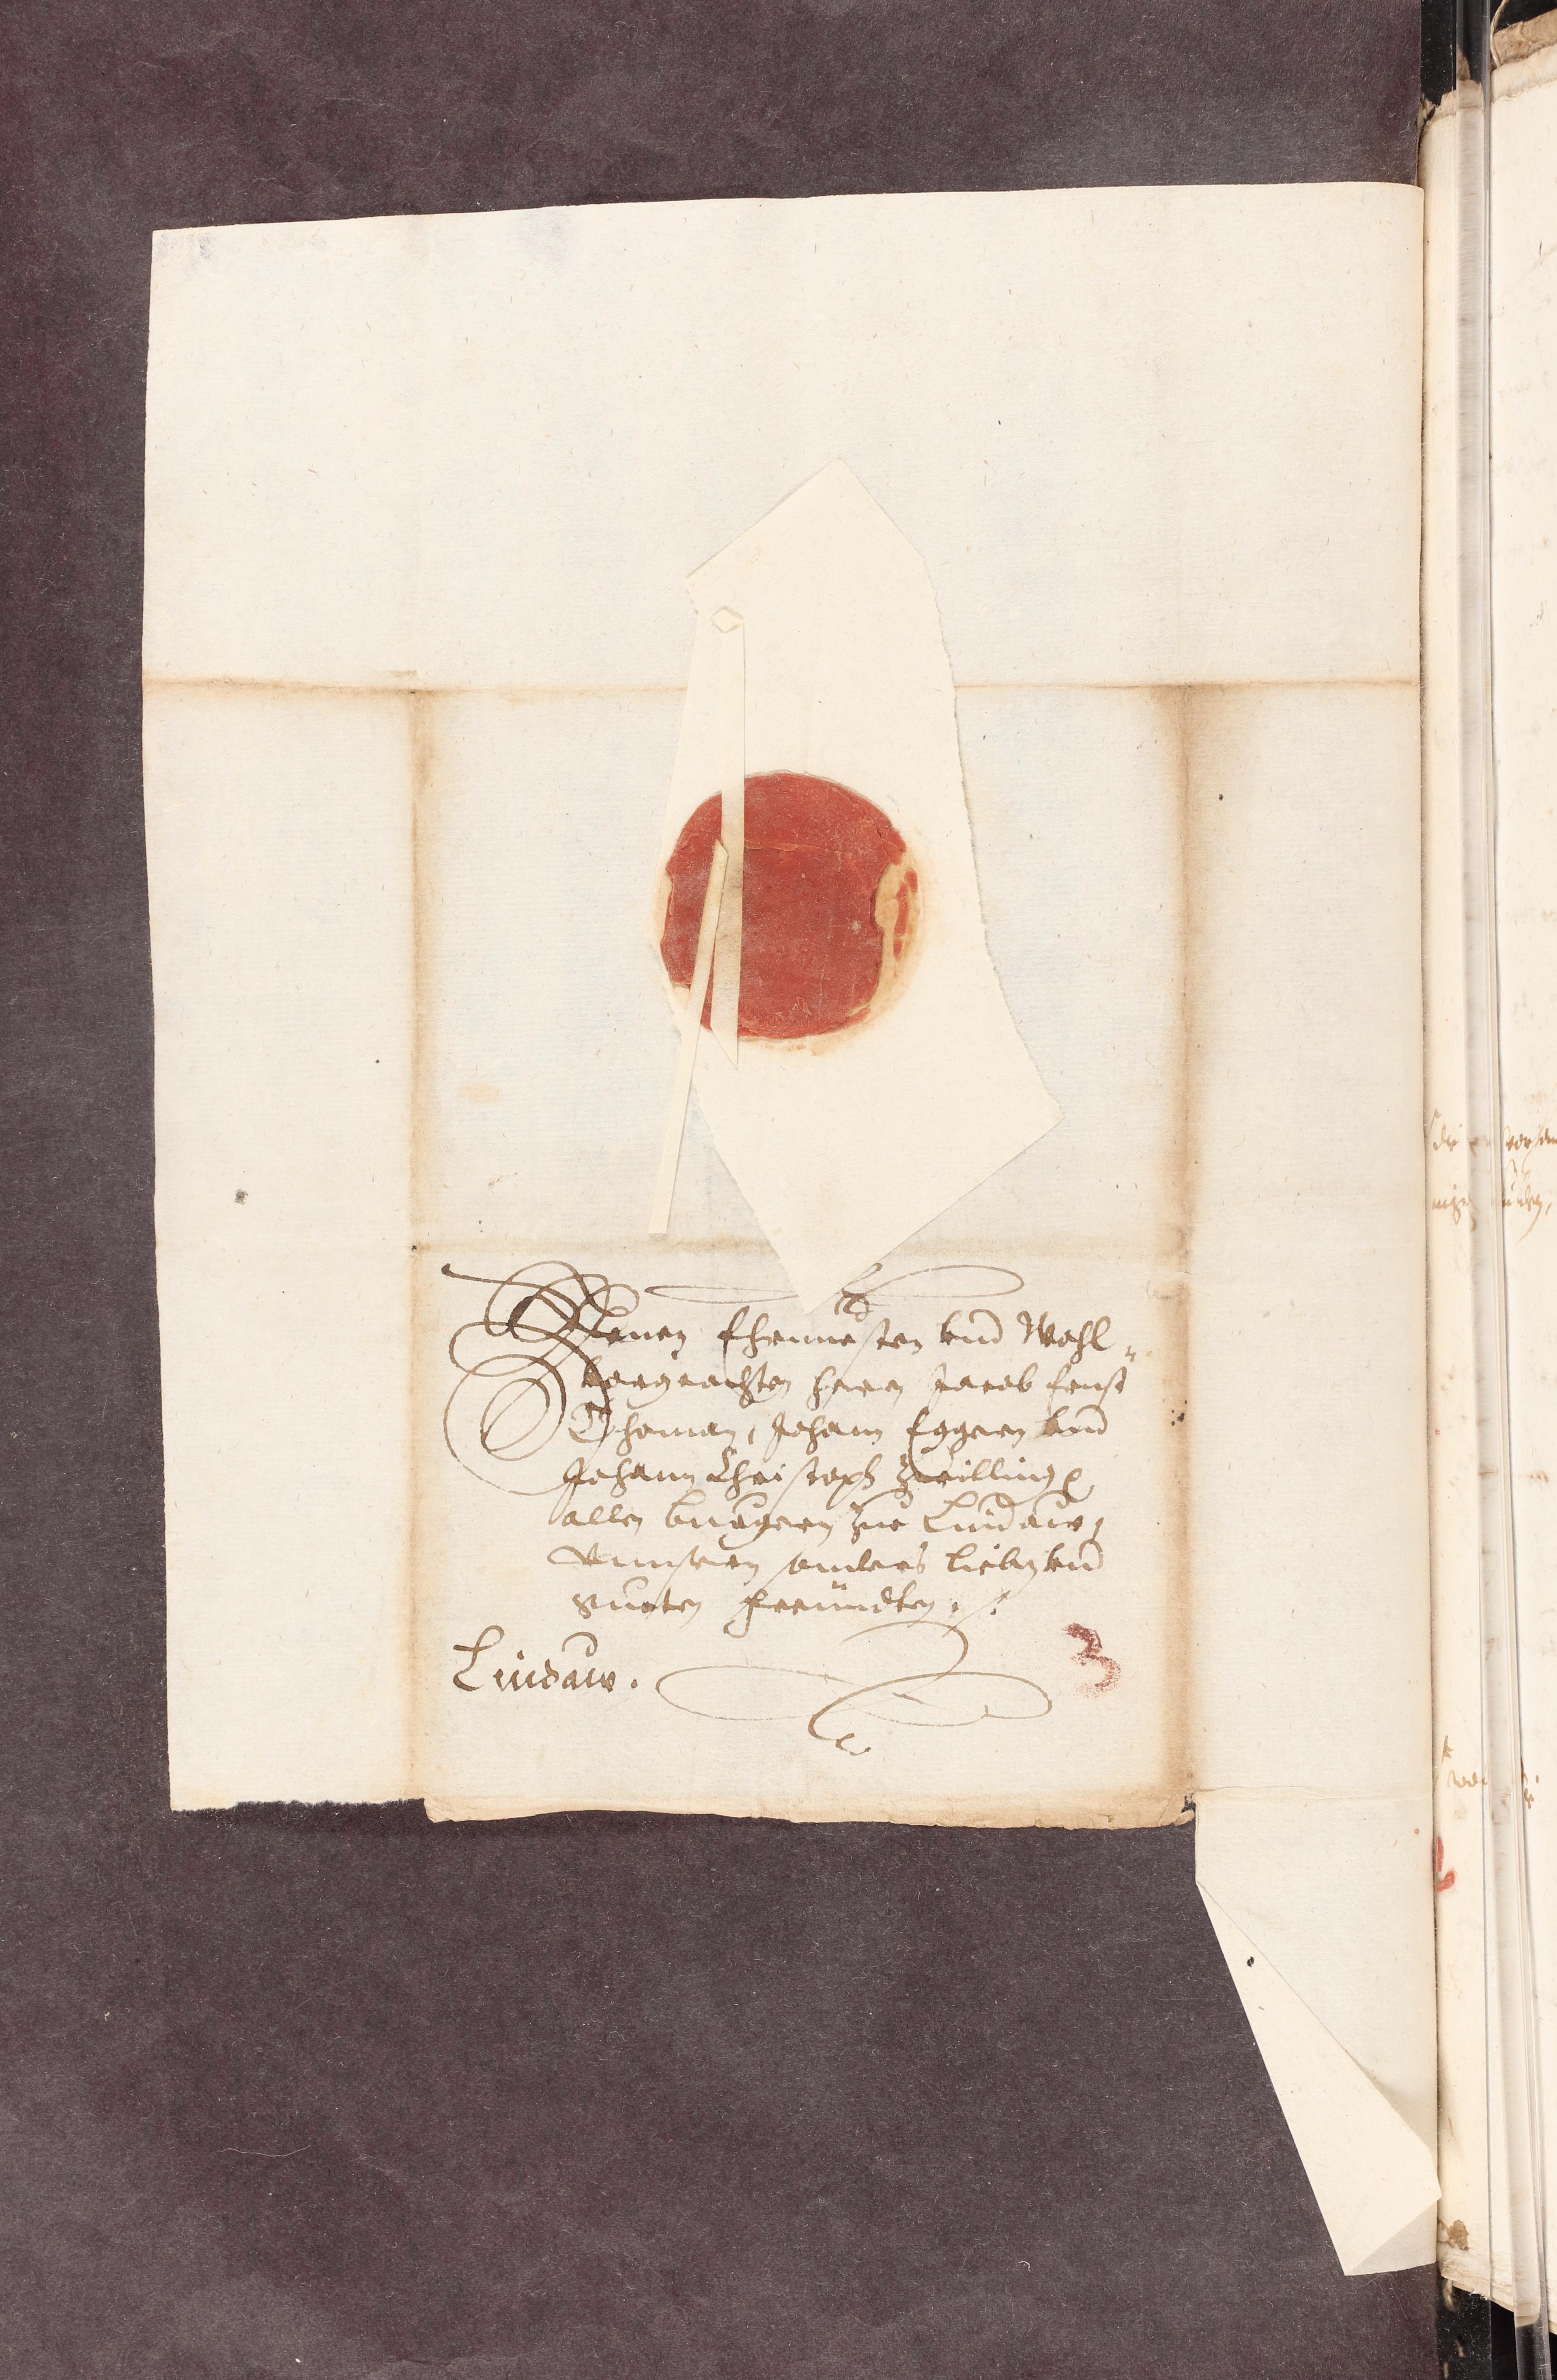 Denen Ehrnuesten vnd Wohl„
vorgeachten herrn Jacob
Thoman, Johann Eggern vnd
Johann Christoph Zwilling
allen burgern zue Lindauw,
Vnnseren sonders lieben vnd
gueten freündten.
Lindauw.
3